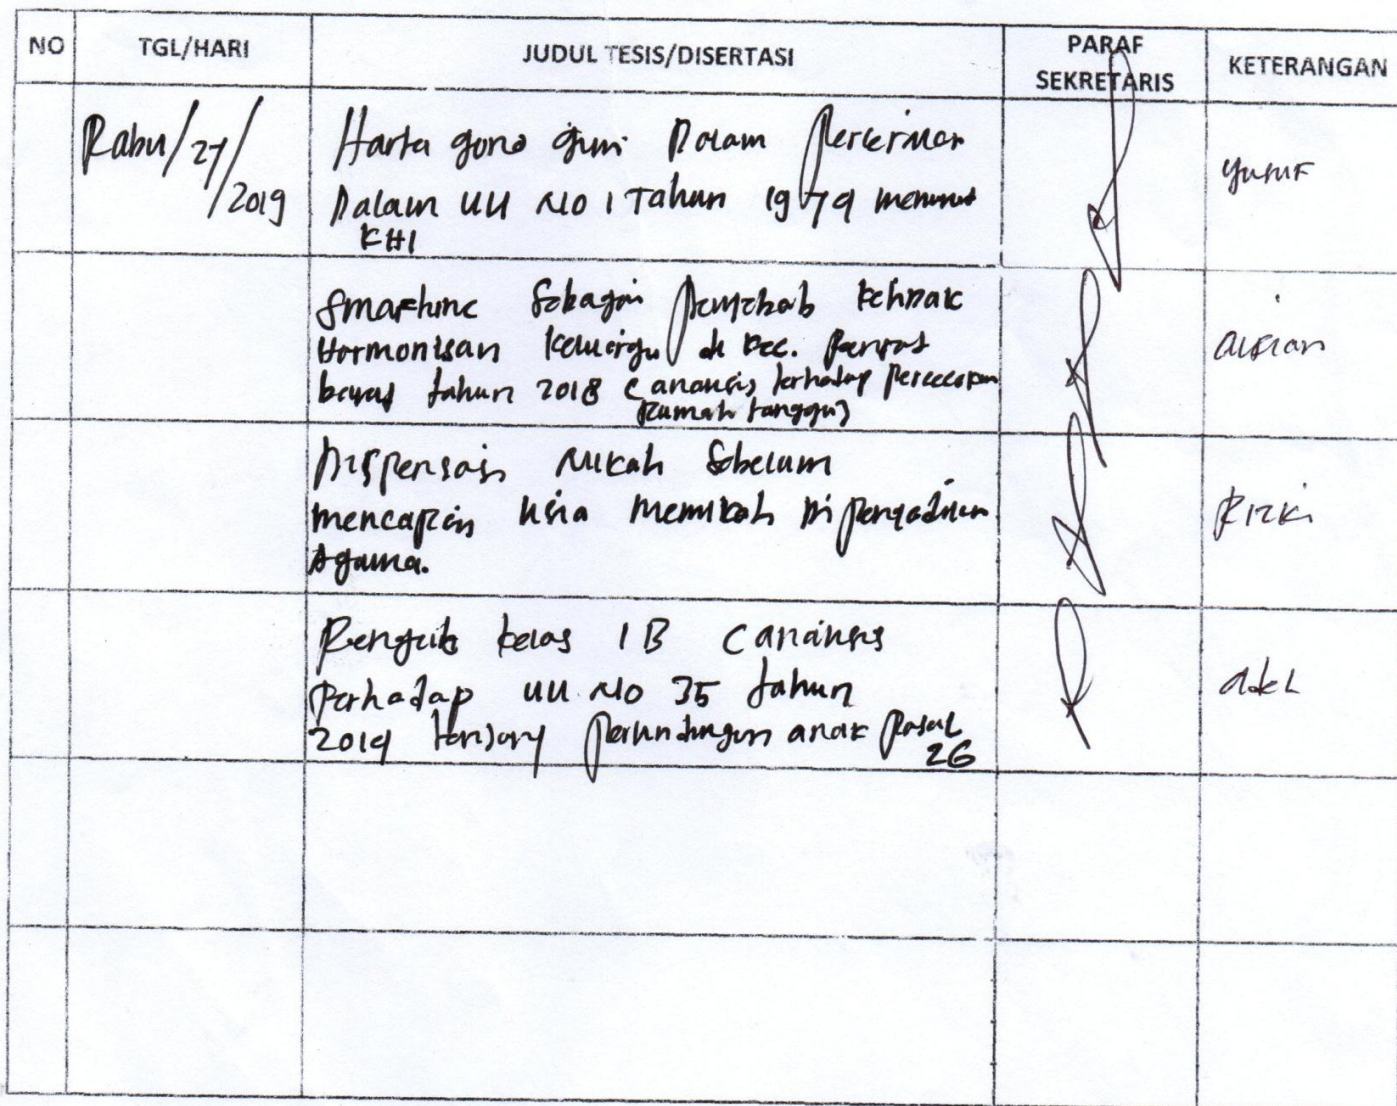 NO TGL/HARI JUDUL TESIS/DISERTASI PARAF SEKRETARIS KETERANGAN
Rabu/27/2019
Harta gono gini Dalam Perceraian
Dalam UU NO 1 Tahun 1974 menurut
KHI
Yusuf
Smartphone Sebagai Penyebab
Harmonisan Keluarga di Kec.
tahun 2018 (Analisis terhadap Percecokan
Rumah tangga)
Dispensasi Nikah Sebelum
mencapai Usia Menikah Di Pengadilan
Agama.
Rizki
kelas 1B (Analisis
Terhadap UU NO 35 tahun
2014 tentang Perlindungan anak Pasal
26